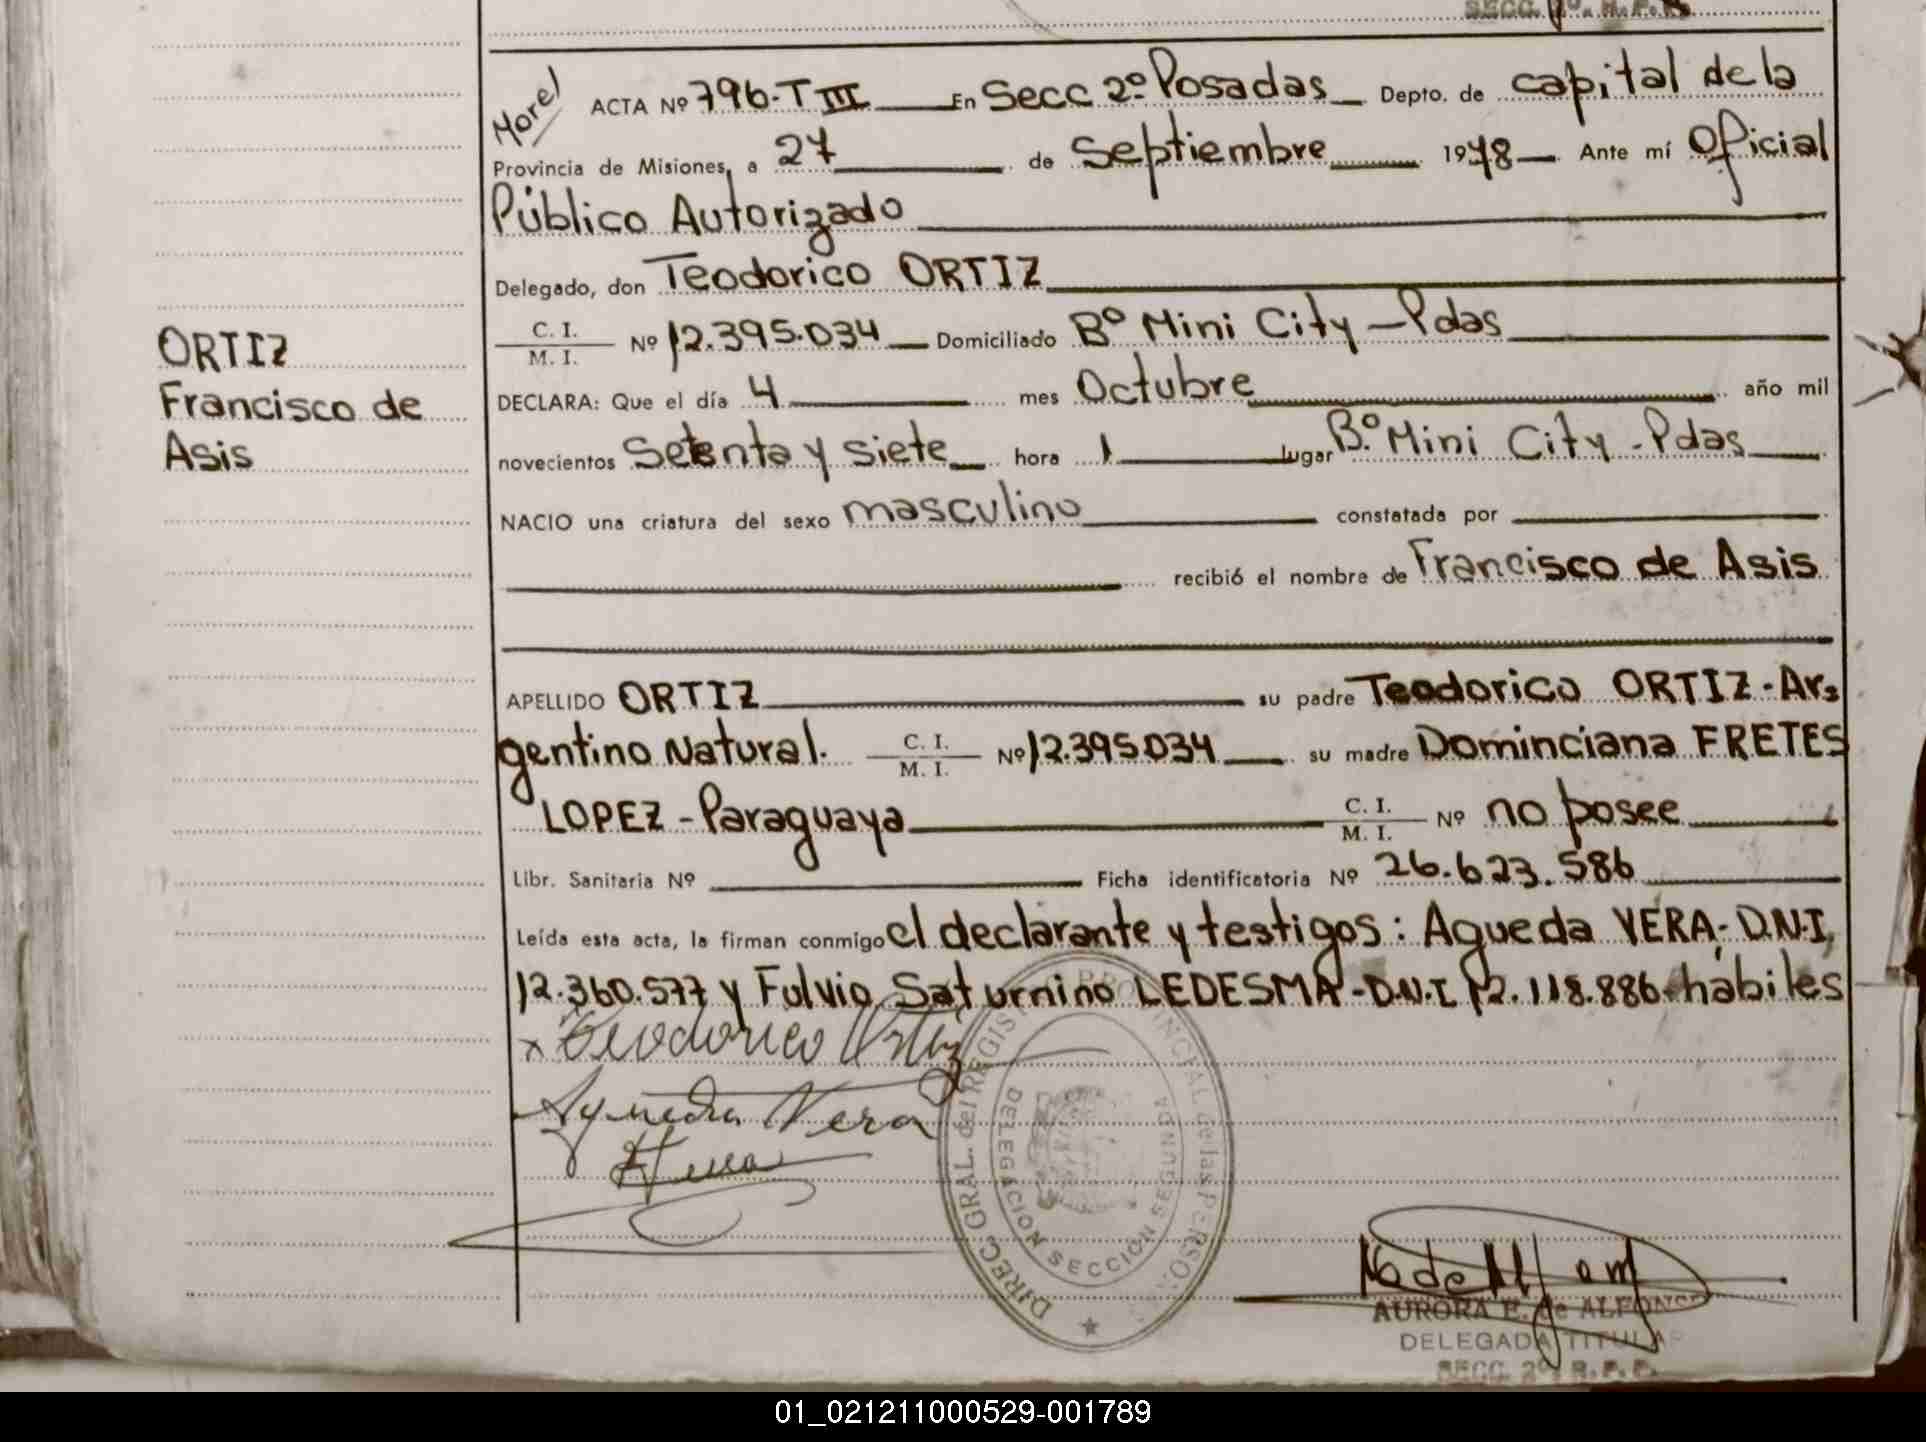 SECC. 2º. R. P. P.
Morel
ACTA Nº 796-T III En Secc 2º Posadas Depto. de capital de la
Provincia de Misiones, a 27 de Septiembre 1978 Ante mí Oficial
Público Autorizado
Delegado, don Teodorico ORTIZ
C. I.
M. I. Nº 12.395.034 Domiciliado Bº Mini City - Pdas
ORTIZ
Francisco de
Asis
DECLARA: Que el día 4 mes Octubre año mil
novecientos Setenta y siete hora 1 lugar Bº Mini City - Pdas
NACIO una criatura del sexo masculino constatada por
recibió el nombre de Francisco de Asis
APELLIDO ORTIZ su padre Teodorico ORTIZ - Ar-
gentino Natural. C. I.
M. I. Nº 12.395.034 su madre Dominciana FRETES
LOPEZ - Paraguaya C. I.
M. I. Nº no posee
Libr. Sanitaria Nº Ficha identificatoria Nº 26.623.586
Leída esta acta, la firman conmigo el declarante y testigos: Agueda VERA - D.N.I.
12.360.577 y Fulvio Saturnino LEDESMA - D.N.I 12.118.886 - hábiles
x Teodorico Ortiz
Agueda Vera
DIREC. GRAL. del REGISTRO PROVINCIAL de las PERSO
DELEGACION SECCION SEGUNDA
AURORA E. de ALFONSO
DELEGADA TITULAR
SECC. 2º R. P. P.
01_021211000529-001789